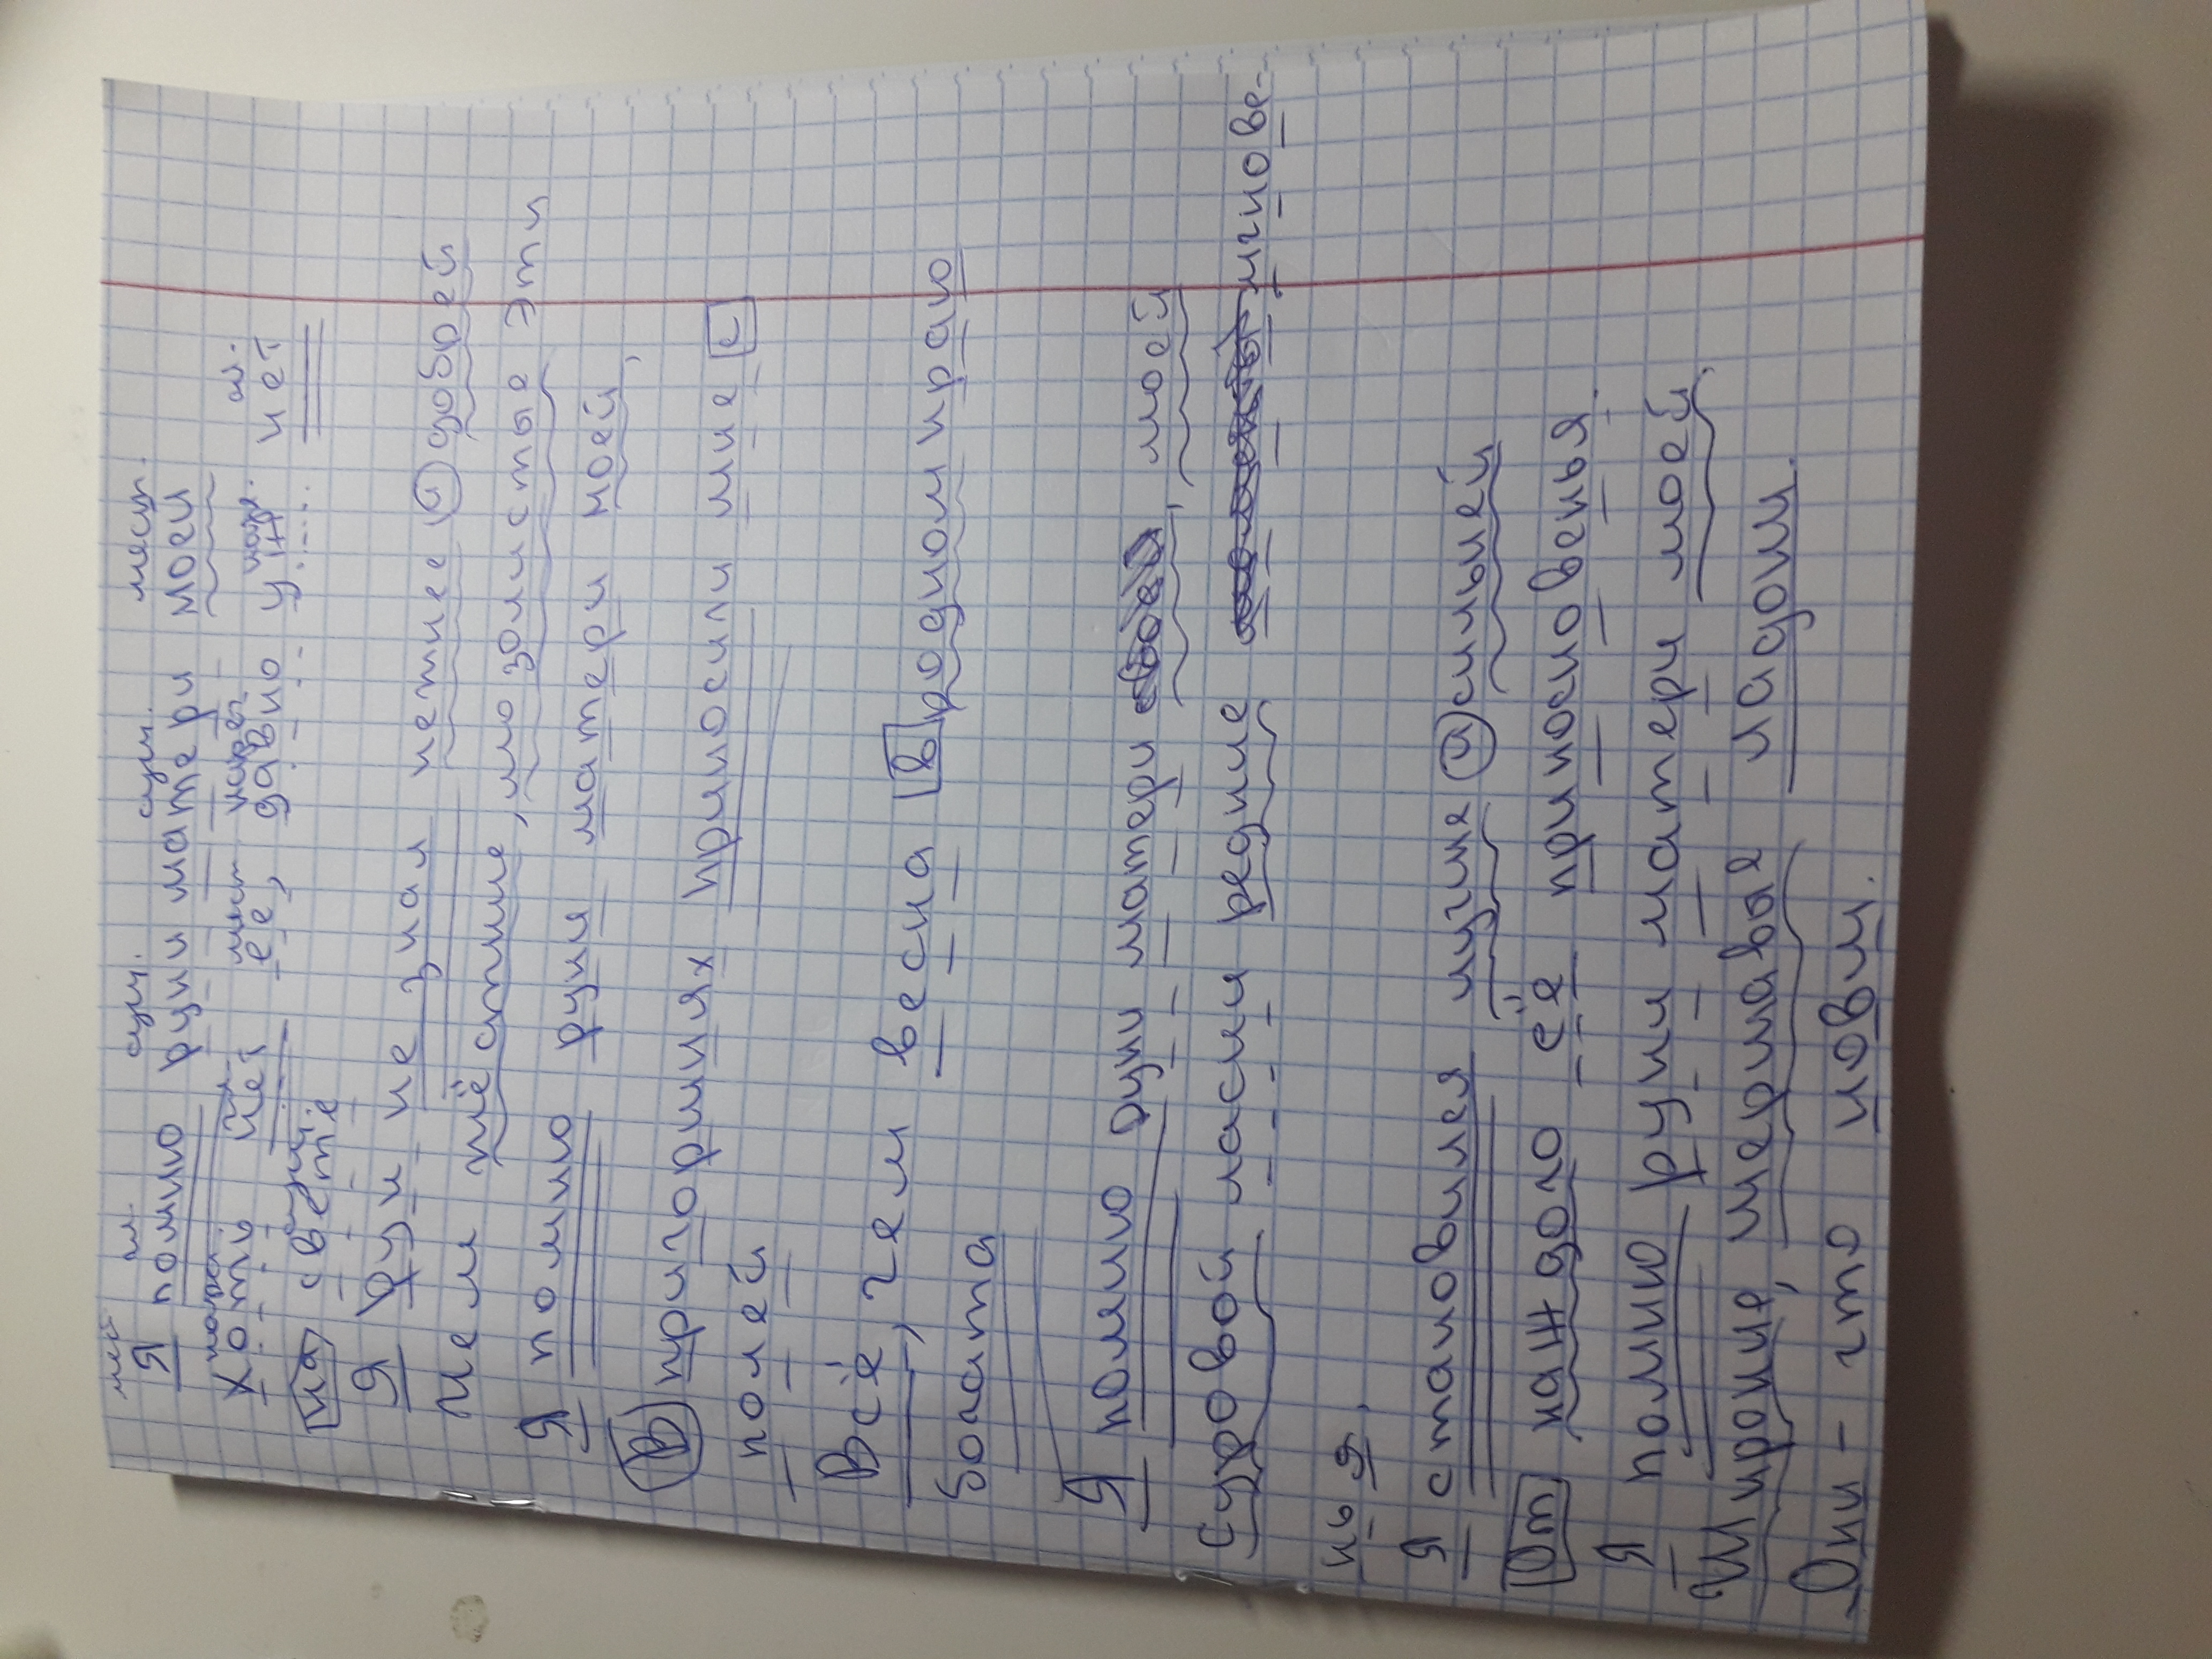 мест. гл. сущ. сущ. мест.
Я помню руки матери моей
нареч. мест. нареч. нареч. гл.
Хоть нет её, давно уж нет
сущ.
на свете
Я рук не знал нежнее и добрей
Чем жёсткие, мозолистые эти
Я помню руки матери моей,
В пригоршнях приносили мне с
полей
Всё, чем весна в родном краю
богата
Я помню руки матери моей
Суровой ласки редкие мгнове-
нья.
Я становился лучше и сильней
От каждого её прикосновенья.
Я помню руки матери моей.
Широкие, шершавые ладони.
Они – что ковш.